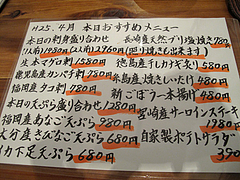 H25.4月 本日おすすめメニュー
本日の刺身盛り合わせ
(1人前)1480円(2人前)2760円
生本マゴ刺 1580円
奄美島産カンパチ刺 780円
福岡産タコ刺 780円
本日の天ぷら盛り合わせ 1280円
福岡産あなご天ぷら 980円
大分産きびなご天ぷら 680円
イカ下足天ぷら 680円
長崎産天然ブリ塩焼き 780円
(照り焼きも出来ます)
徳島産チレカナギ炙り 580円
糸島産焼きしいたけ 480円
新ごぼう一本揚げ 480円
宮崎産サーロインステーキ 1980円
自家製ポテトサラダ 390